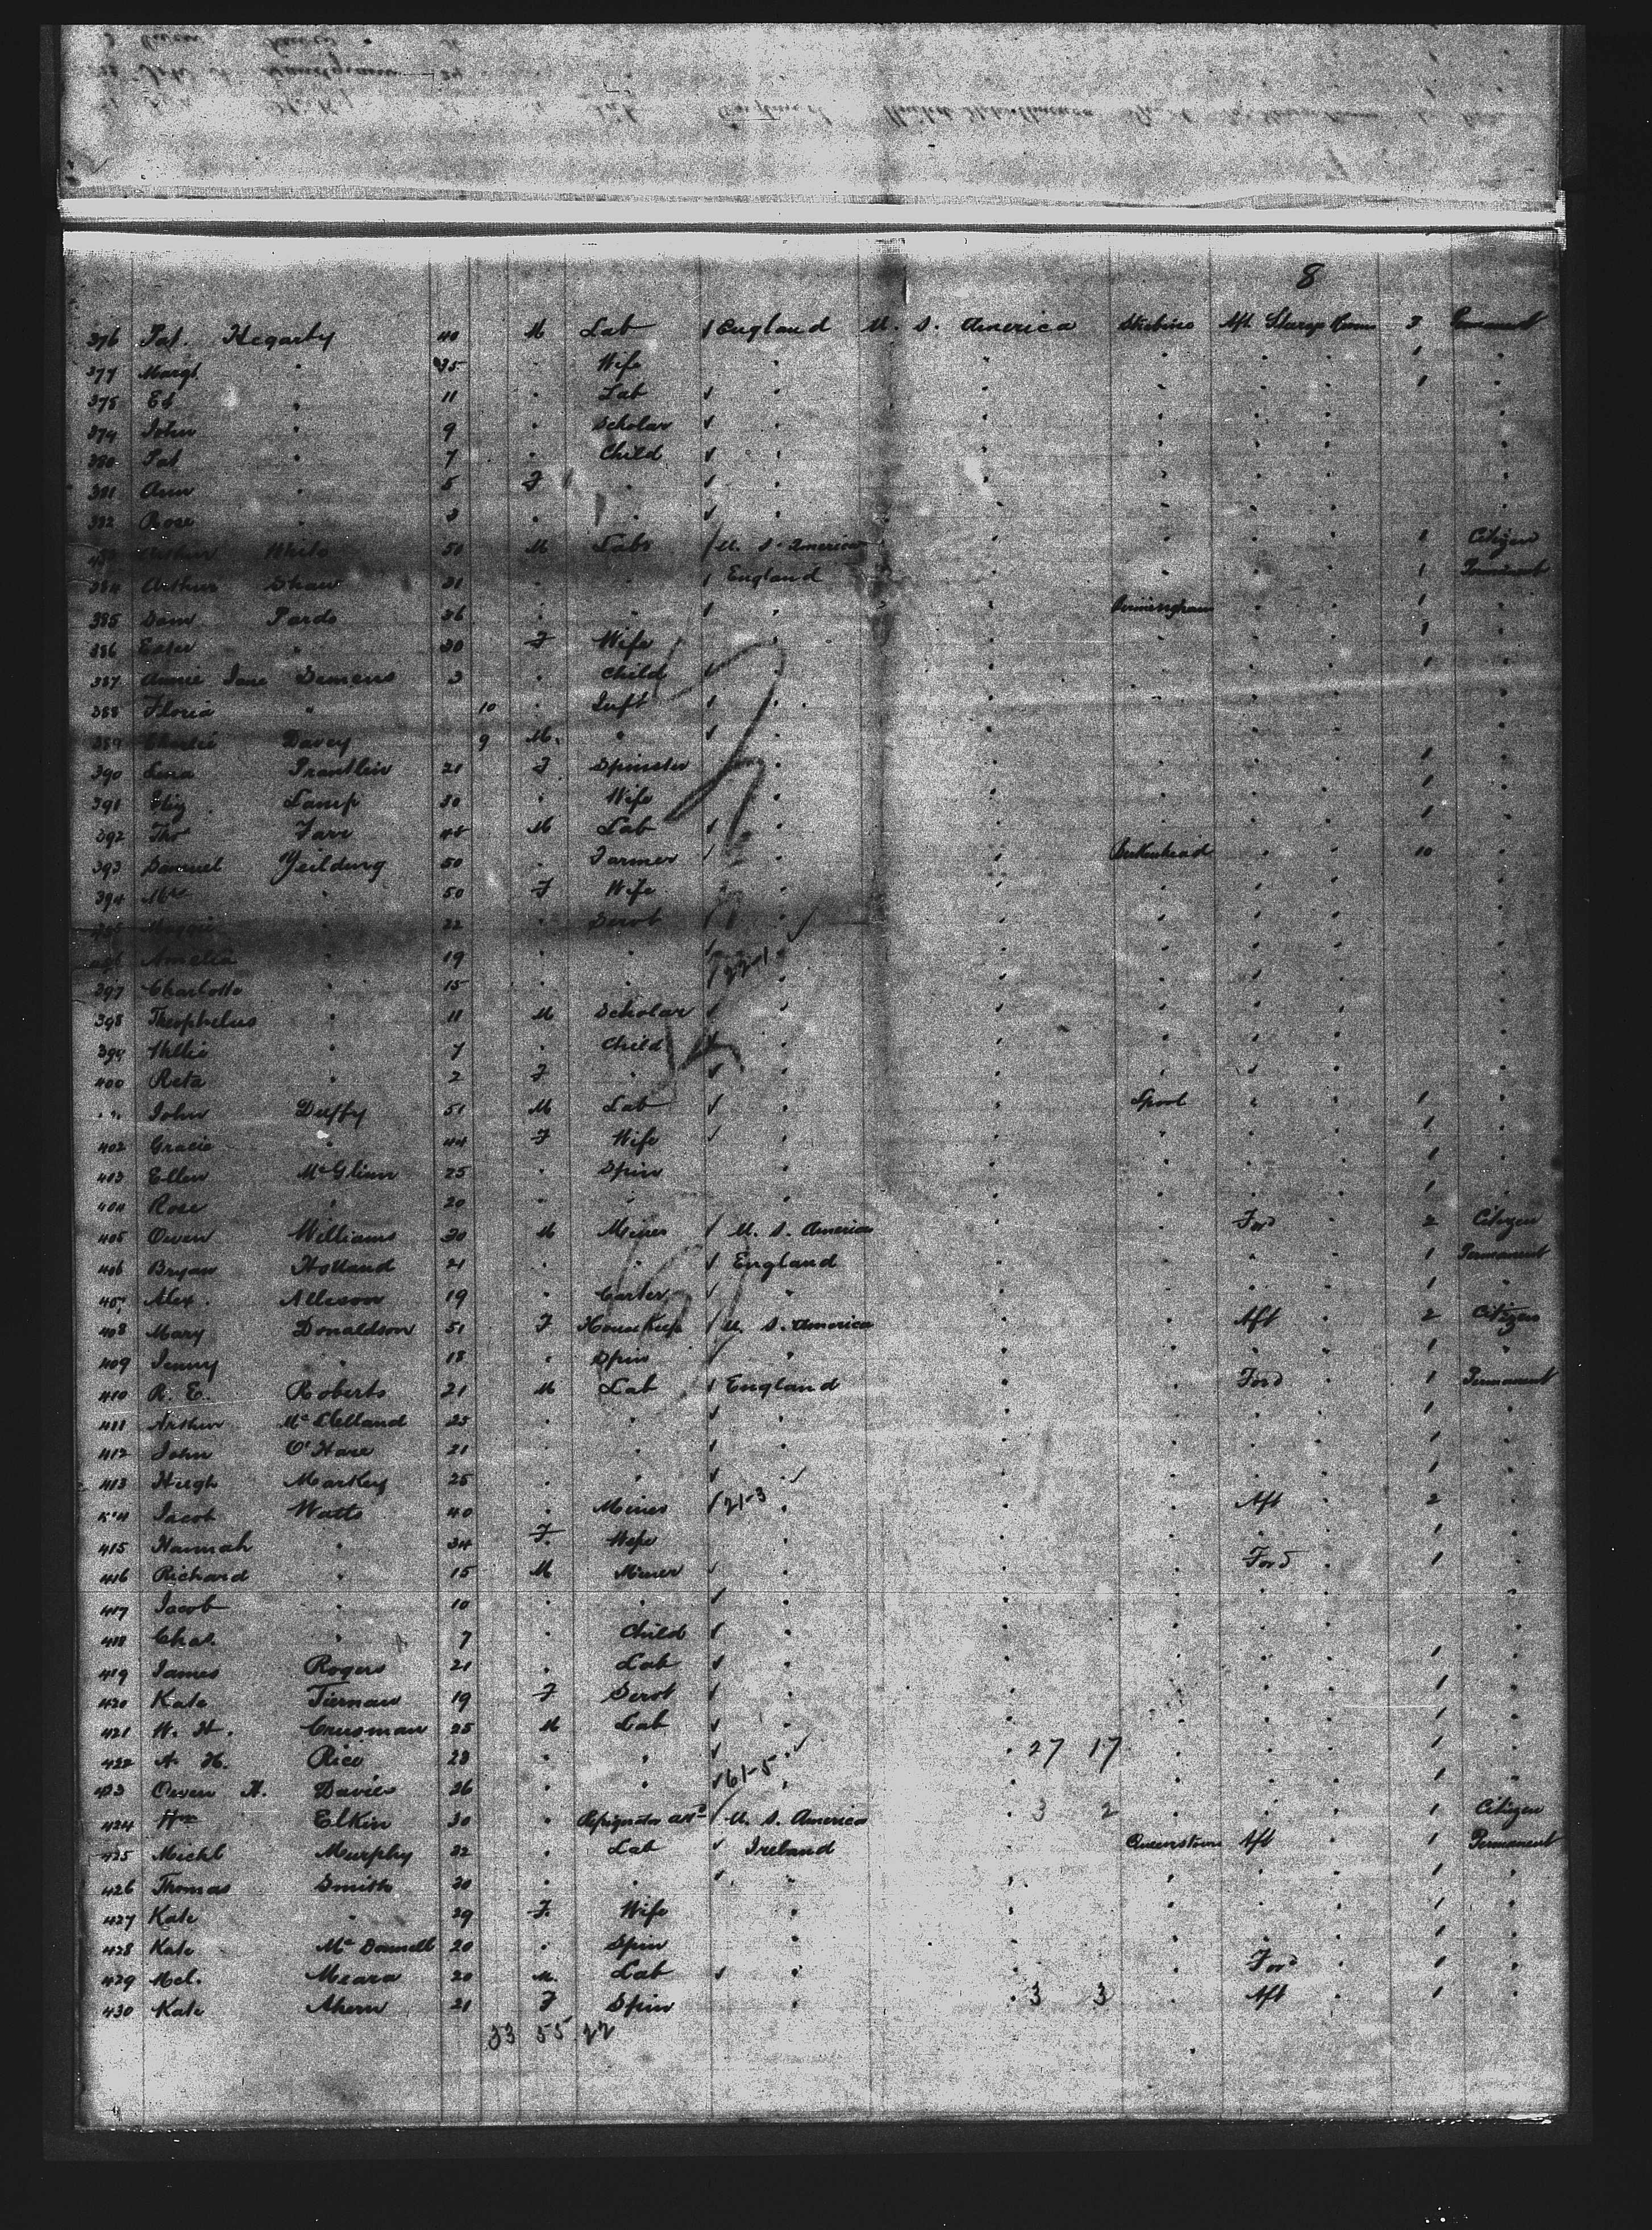 8
376 Pat. Hegarty 40 M Lab England U. S. America Aft Steerage 3 Permanent
377 Margt " 35 " Wife " " " 1 "
378 Ed " 11 " Lab " " " 1 "
379 John " 9 " Scholar " " "
380 Pat " 7 " Child " " "
381 Ann " 5 F " " " "
382 Rose " 3 " " " " "
White 50 M Labr U. S. America " 1 Citizen
384 Arthur Shaw 31 " " England " 1 Permanent
385 Sam Pardo 36 " " " " Birmingham " 1 "
386 Ester " 30 F Wife " " " 1 "
387 Annie Jane Demens 3 " Child " " " 1 "
388 Floria " 10 " Inft " " " "
389 Charlie Davey 9 M. " " " " "
390 Lena 21 F Spinster " " " 1 "
391 Eliz Lamp 30 " Wife " " " 1 "
392 Thos Farr 45 M Lab " " " 1 "
393 Samuel Yeildung 50 " Farmer " " Birkenhead " 10 "
394 Mrs " 50 F Wife " " " "
395 Maggie " 22 " Servt " " " "
Amelia " 19 " " " " "
397 Charlotte " 15 " " 22-1 " " "
398 Theophelus " 11 M Scholar " " " "
399 Willie " 7 " Child " " " "
400 Reta " 2 F " " " " "
John Duffy 51 M Lab " " Lpool " 1 "
402 Gracie " 44 F Wife " " " 1 "
403 Ellen McGlinn 25 " Spin " " " 1 "
404 Rose " 20 " " " " " 1 "
405 Owen Williams 30 M Miner U. S. America " " Ford 2 Citizen
406 Bryan Holland 21 " " England " " " 1 Permanent
407 Alex. Allison 19 " Carter " " " 1 "
408 Mary Donaldson 51 F House Keep U. S. America " " Aft 2 Citizen
409 Jenny " 18 " Spin " " " 1 "
410 R. E. Roberts 21 M Lab England " " Ford 1 Permanent
411 Arthur McClelland 25 " " " " " 1 "
412 John O'Hare 21 " " " " " 1 "
413 Hugh Markey 25 " " " " " 1 "
414 Jacob Watts 40 " Miner 21-3 " " Aft 2 "
415 Hannah " 34 F. Wife " " " 1 "
416 Richard " 15 M Miner " " Ford 1 "
417 Jacob " 10 " " " " " "
418 Chas. " 7 " Child " " " "
419 James Rogers 21 " Lab " " " 1 "
420 Kate Tiernan 19 F Servt " " " 1 "
421 W. H. Crusman 25 M Lab " " " 1 "
422 A. H. Rice 28 " " " 27 17 " 1 "
423 Owen H. Davies 26 " " 61-5 " " 1 "
424 Wm Elkin 30 " U. S. America 3 2 " 1 Citizen
425 Michl Murphy 32 " Lab Ireland Queenstown Aft 1 Permanent
426 Thomas Smith 30 " " " " " 1 "
427 Kate " 29 F. Wife " " " 1 "
428 Kate McDonnell 20 " Spin " " " 1 "
429 Mcl. Meara 20 M. Lab " " Ford 1 "
430 Kate Ahern 21 F Spin " 3 3 " Aft 1 "
33 55 22